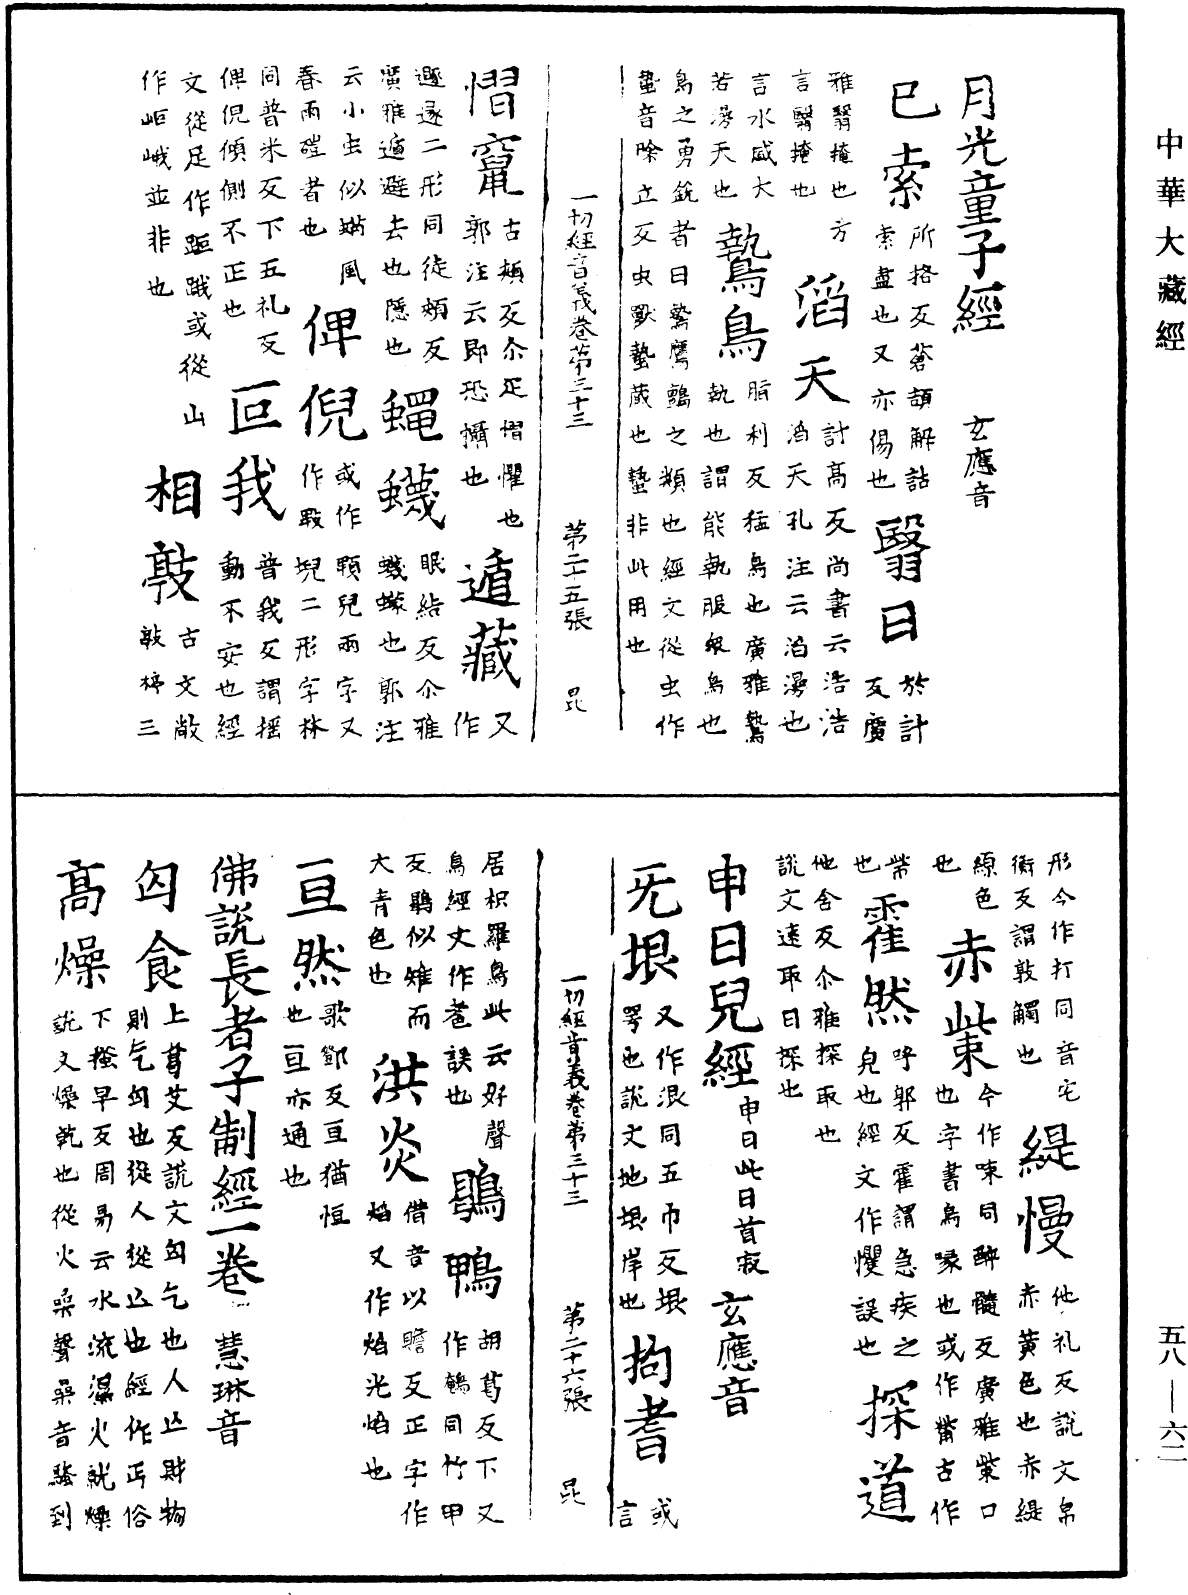 中華大藏經
月光童子經 玄應音
巳索 所挌反蒼頡解詁索盡也又亦傷也 翳日 於計反廣
雅翳掩也方言翳掩也 滔天 討高反尚書云浩浩滔天孔注云滔漫也
言水盛大若漫天也 鷙鳥 脂利反猛鳥也廣雅鷙執也謂能執服眾鳥也
鳥之勇銳者曰鷙鷹鸇之類也經文從虫作蟄音除立反虫獸蟄藏也蟄非此用也
一切經音義卷第三十三 第二十五張 昆
慴竄 古頰反尒疋慴懼也郭注云即恐懾也 遁藏 又作
遯遂二形同徒頓反廣雅遁避去也隱也 蠅蠛 眠結反尒雅蠛蠓也郭注
云小虫似蜹風舂雨磑者也 俾倪 或作顊兒兩字又作堄二形字林
同普米反下五礼反俾倪傾側不正也 叵我 普我反謂搖動不安也經
文從足作距或從山作岠峨並非也 相敦 古文敞敦揨三
形今作打同音宅衡反謂敦觸也 緹慢 他礼反說文帛赤黃色也赤緹
縓色也 赤㭰 今作㖩同醉髓反廣雅㭰口也字書鳥喙也或作觜古作
㭰也 霍然 呼郭反霍謂急疾之皃也經文作戄誤也 探道
他含反尒雅探取也說文遠取曰探也
申日兒經 申日此曰首寂 玄應音
无垠 又作泿同五巾反垠咢也說文地垠岸也 拘耆 或言
一切經音義卷第三十三 第二十六張 昆
居枳羅鳥此云好聲鳥經文作耆誤也 鶡鴨 胡葛反下又作鶴同竹甲
反鶡似雉而大青色也 洪炎 借音以贍反正字作焰又作焰光焰也
亘然 歌鄧反亘猶恒也亘亦通也
佛說長者子制經一卷 慧琳音
匃食 上葛艾反說文匃气也人亾財物則气匃也從人從亾也經作丐俗
高燥 下搔早反周易云水流濕火就燥說文燥乾也從火喿聲喿音騷到
五八—六二